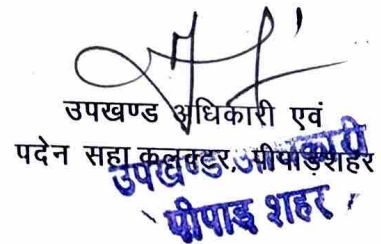 उपखण्ड अधिकारी एवं
पदेन सहा कलक्टर, पीपाड़शहर
उपखण्ड अधिकारी
पीपाड़ शहर